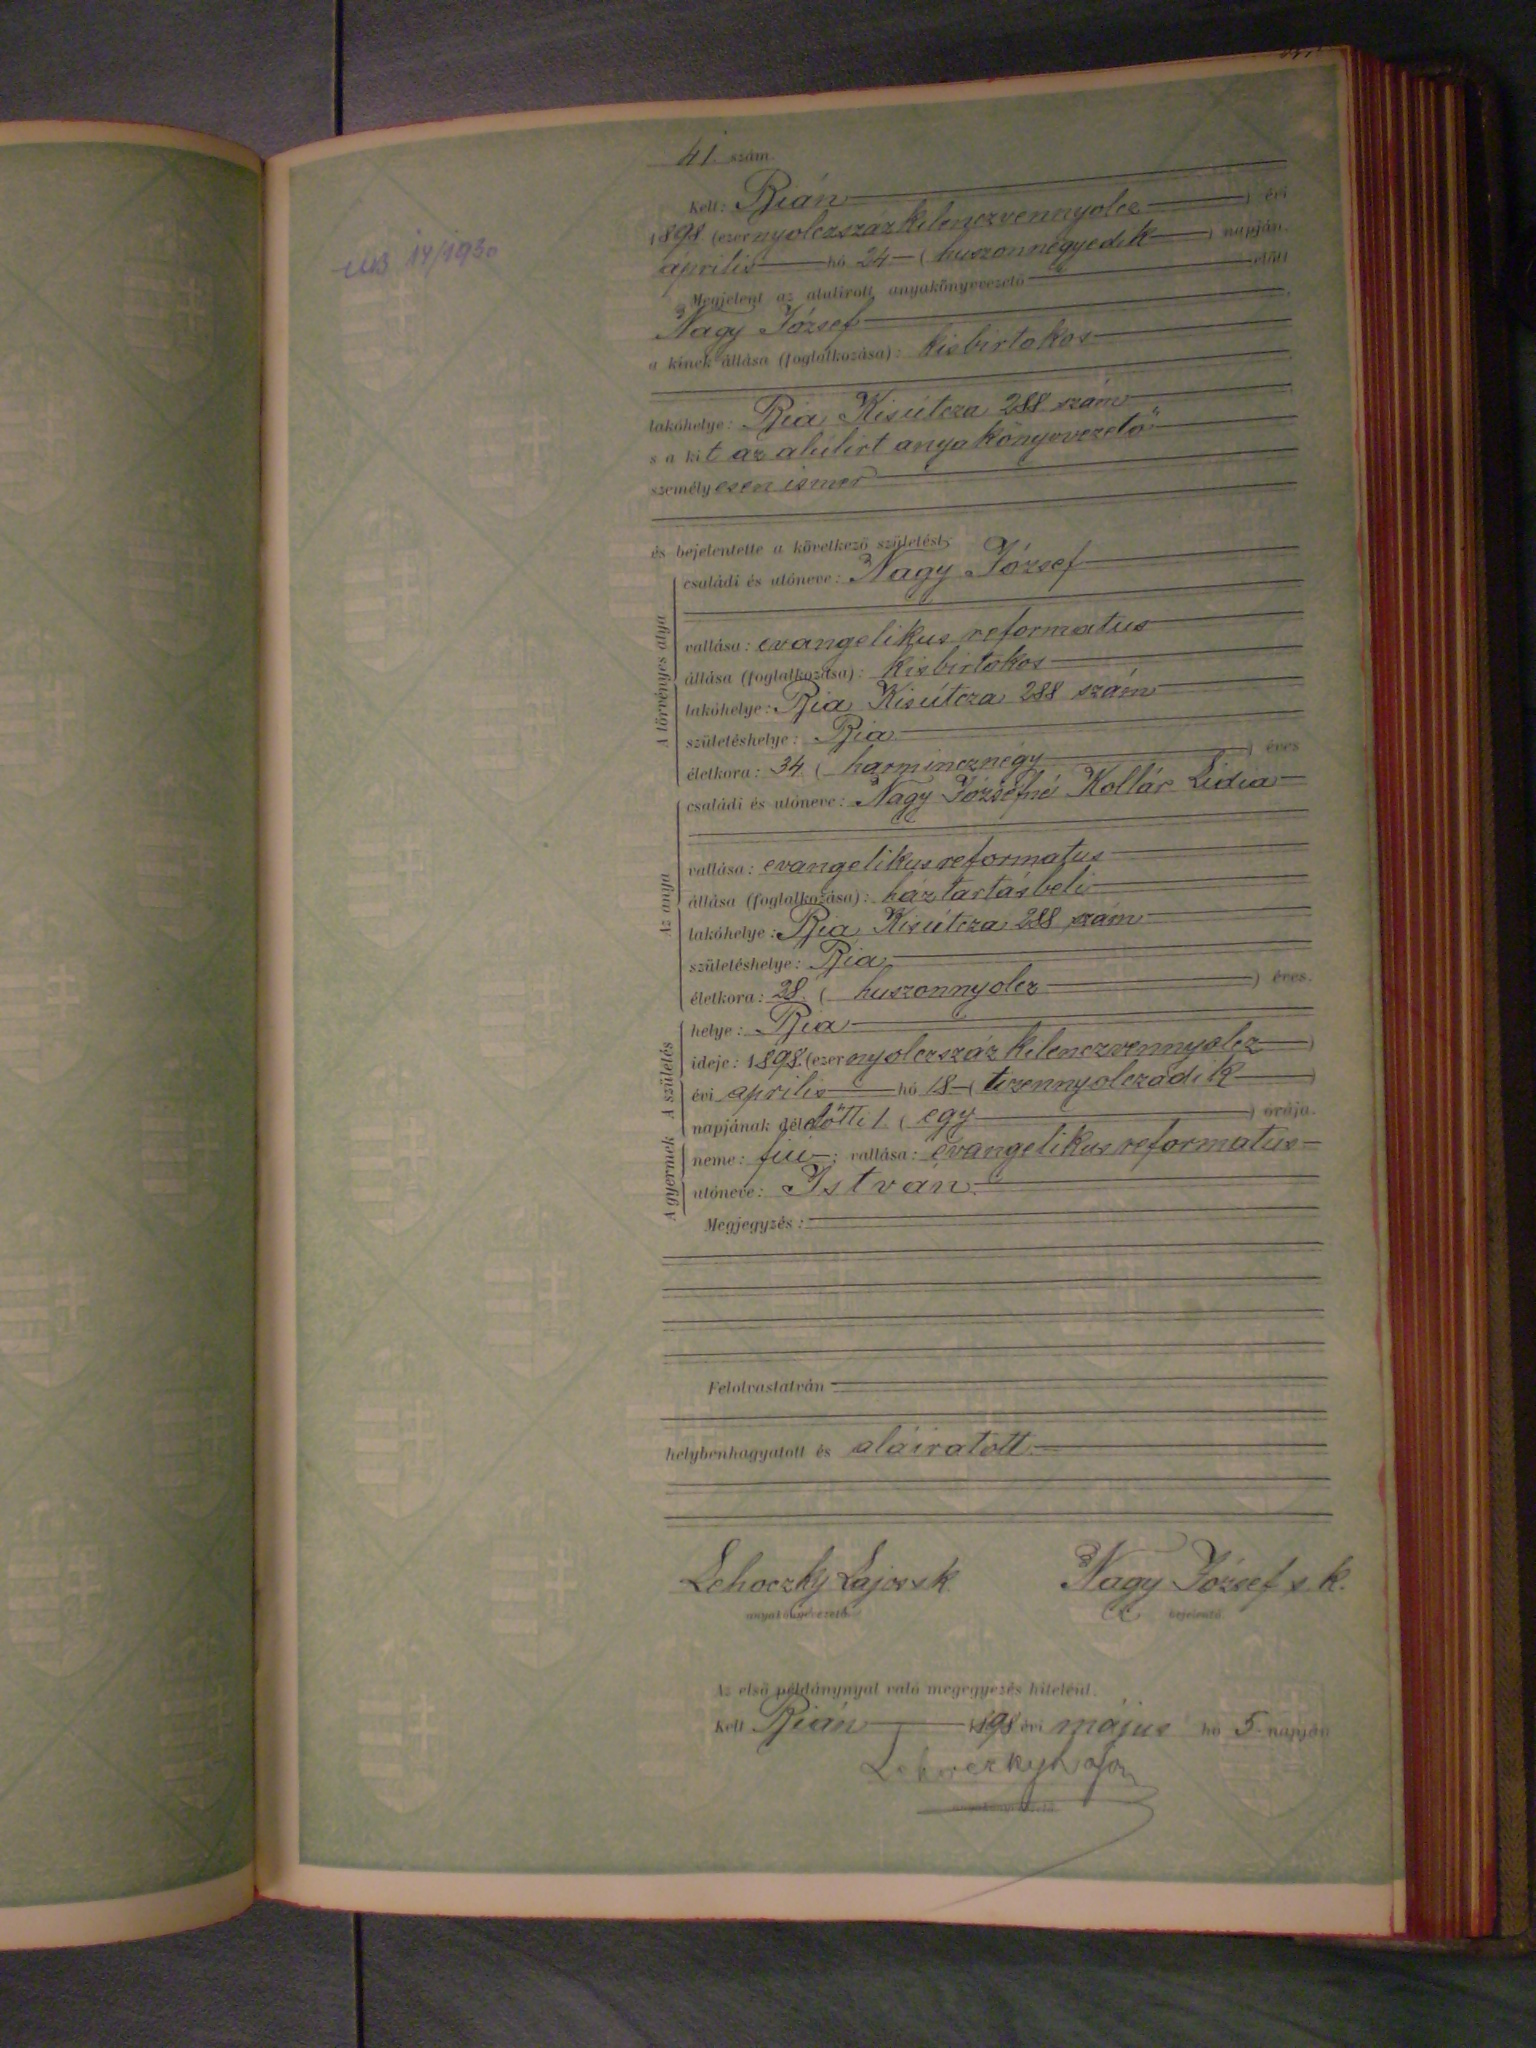 41. szám.
Kelt: Bián
1898. (ezernyolczszázkilenczvennyolcz) évi
április hó 24 (huszonnegyedik) napján.
14/1930
Megjelent az alulirott anyakönyvvezető előtt
Nagy József
a kinek állása (foglalkozása): kisbirtokos
lakóhelye: Bia, Kisútcza 288 szám
s a kit az alúlirt anyakönyvvezető
személyesen ismer
és bejelentette a következő születést:
A törvényes atya
családi és utóneve: Nagy József
vallása: evangelikus reformatus
állása (foglalkozása): kisbirtokos
lakóhelye: Bia, Kisútcza 288 szám
születéshelye: Bia
életkora: 34 (harmincznégy) éves
Az anya
családi és utóneve: Nagy Józsefné Kollár Lidia
vallása: evangelikus reformatus
állása (foglalkozása): háztartásbeli
lakóhelye: Bia, Kisútcza 288 szám
születéshelye: Bia
életkora: 28. (huszonnyolcz) éves.
A születés
helye: Bia
ideje: 1898. (ezernyolczszázkilenczvennyolcz)
évi április hó 18 (tizennyolczadik)
napjának délelőtti 1 (egy) órája.
A gyermek
neme: fiú; vallása: evangelikus reformatus
utóneve: István.
Megjegyzés:
Felolvastatván
helybenhagyatott és aláiratott.
Lehoczky Lajos sk. Nagy József s k.
anyakönyvvezető. bejelentő.
Az első példánynyal való megegyezés hiteléül.
Kelt Bián 1898 évi május hó 5 napján
Lehoczky Lajos
anyakönyvvezető.